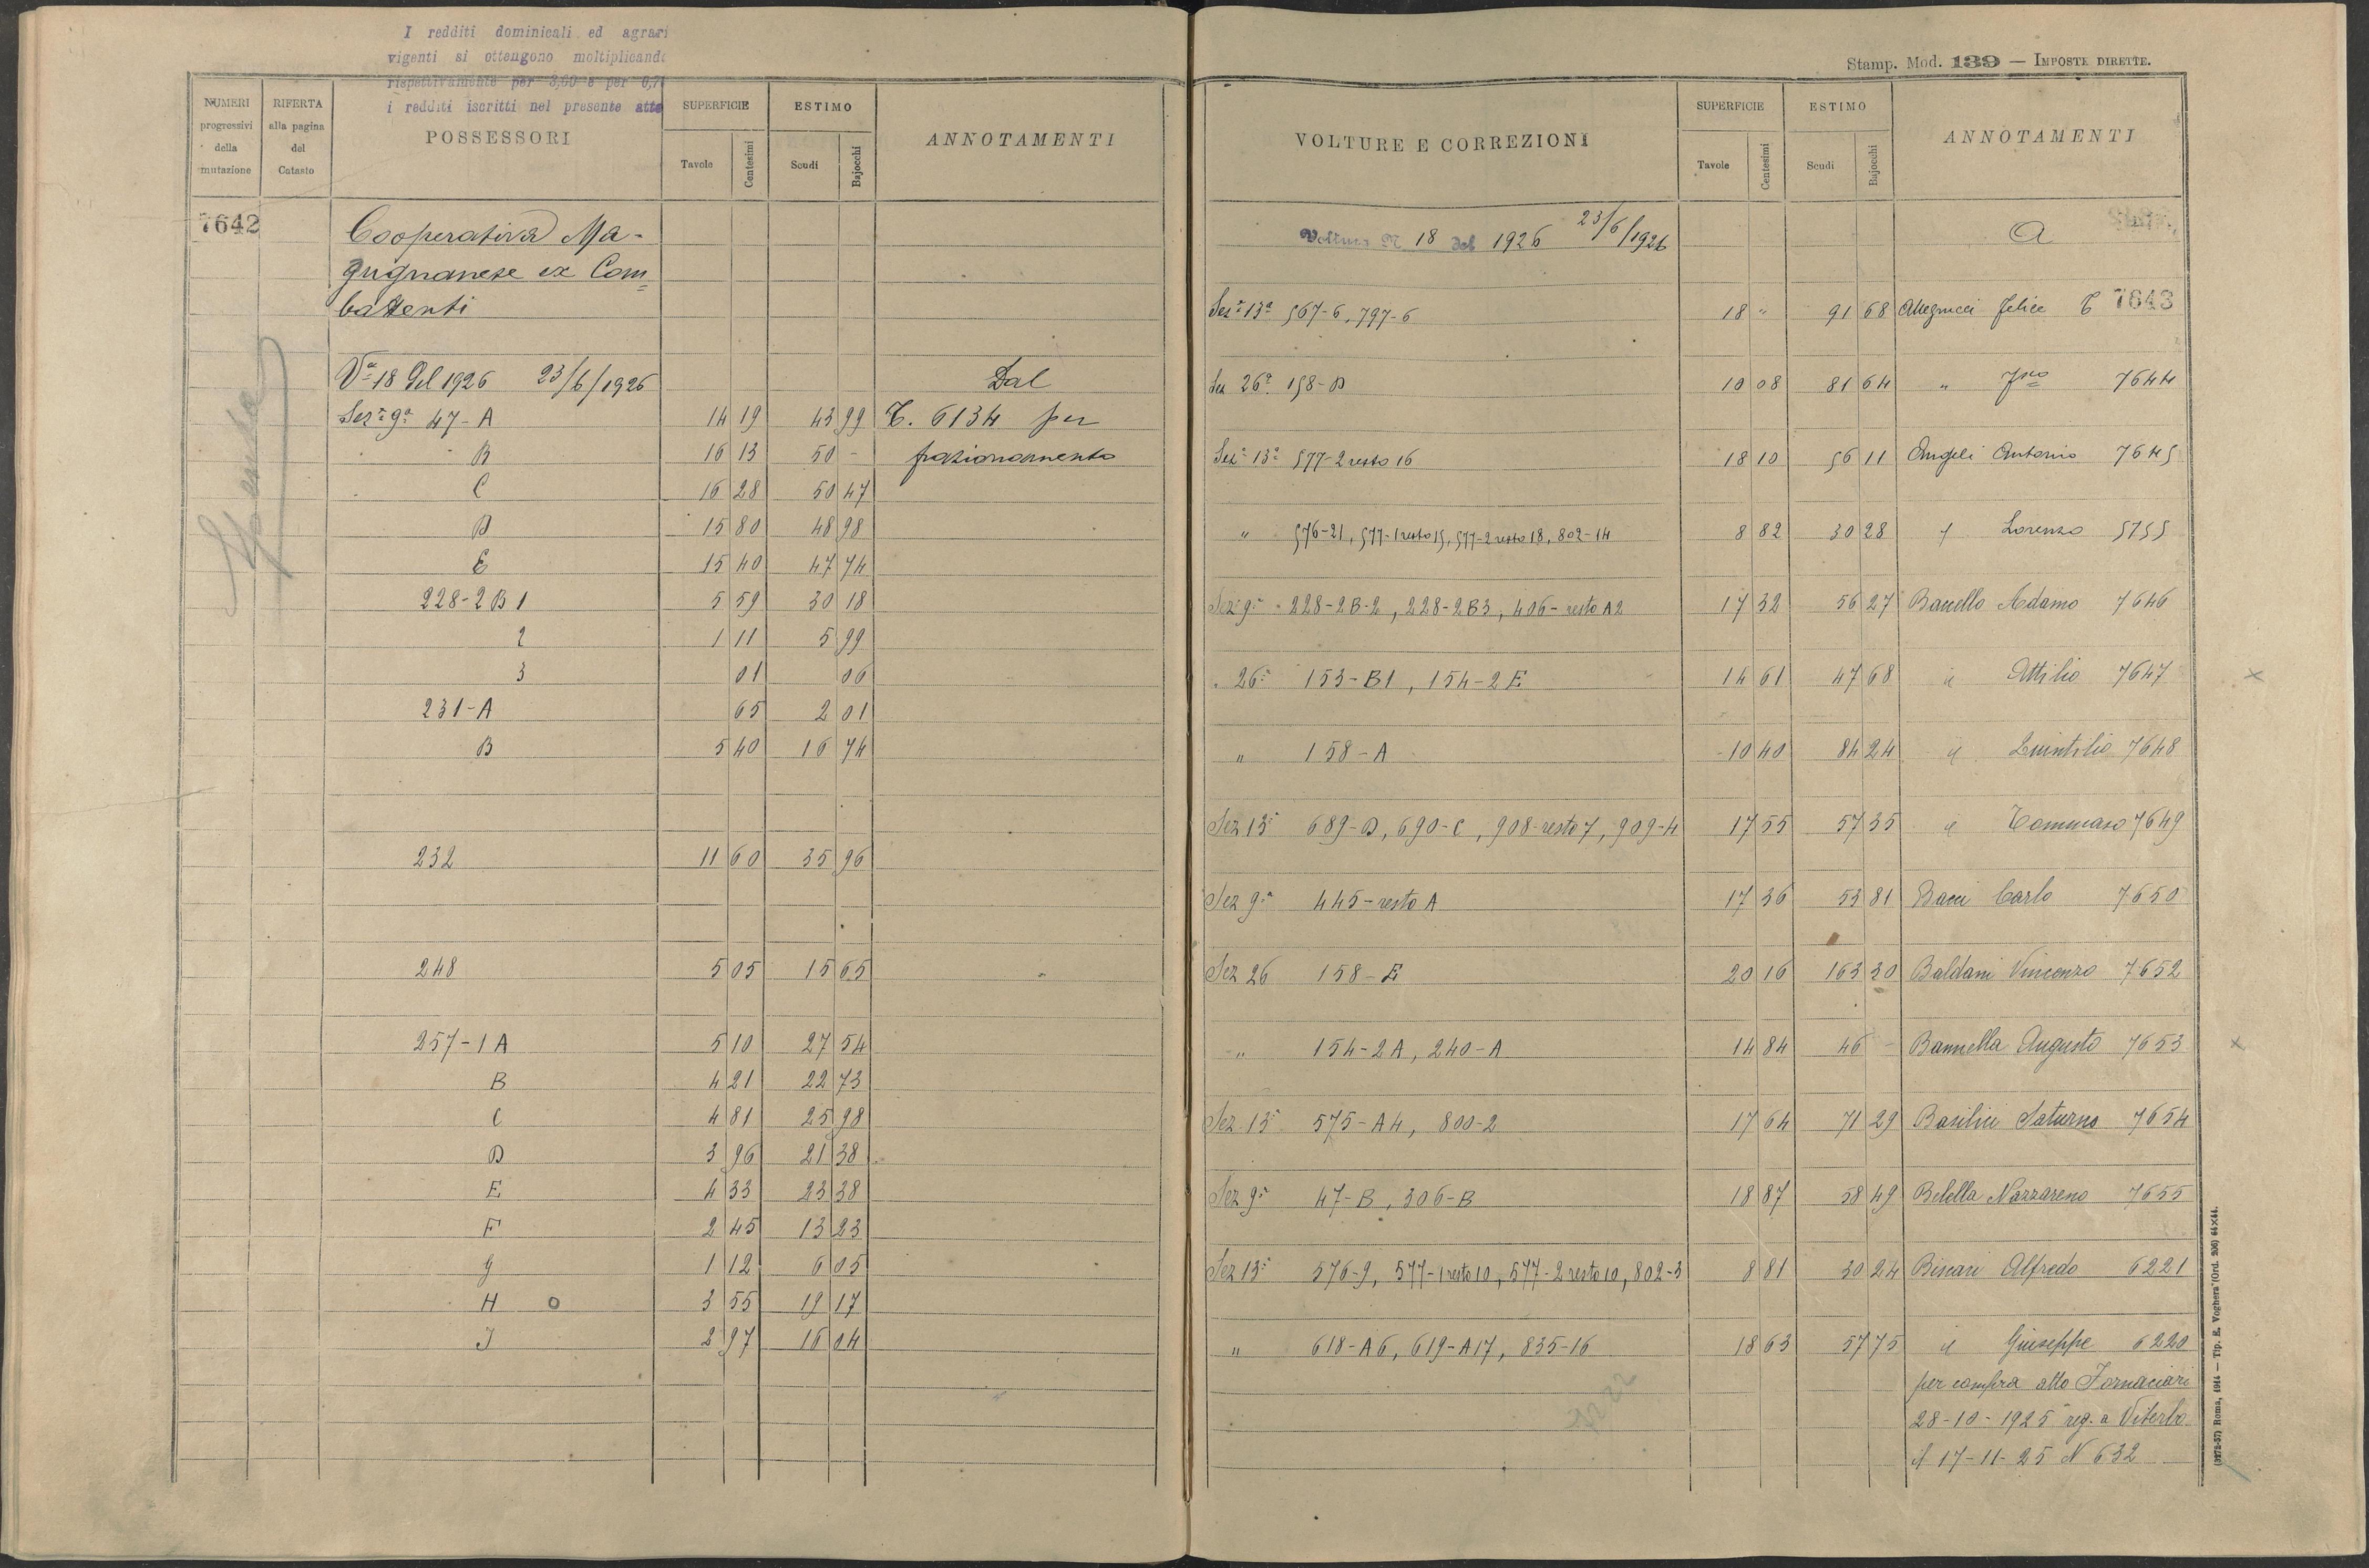 I redditi dominicali ed agrari
vigenti si ottengono moltiplicando
rispettivamente per 3,60 e per 6,7
i redditi iscritti nel presente atto
NUMERI progressivi della mutazione
RIFERTA alla pagina del Catasto
POSSESSORI
SUPERFICIE Tavole Centesimi
ESTIMO Scudi Bajocchi
ANNOTAMENTI
7642 Cooperativa Ma-
gugnanese ex Com=
battenti
Va 18 del 1926 23/6/1926 Dal
Sez. 9a 47-A 14 19 43 99 T. 6134 per
B 16 13 50 - frazionamento
C 16 28 50 47
D 15 80 48 98
E 15 40 47 74
228-2 B 1 5 59 30 18
2 1 11 5 99
3 01 06
231-A 65 2 01
B 5 40 16 74
232 11 60 35 96
248 5 05 15 65
257-1 A 5 10 27 54
B 4 21 22 73
C 4 81 25 98
D 3 96 21 38
E 4 33 23 38
F 2 45 13 23
G 1 12 6 05
H o 3 55 19 17
J 2 97 16 04
Stamp. Mod. 139 — IMPOSTE DIRETTE.
VOLTURE E CORREZIONI
SUPERFICIE Tavole Centesimi
ESTIMO Scudi Bajocchi
ANNOTAMENTI
Voltura N 18 del 1926 23/6/1926 A
Sez. 13a 567-6, 797-6 18 " 91 68 Felice T 7643
Sez 26a 158-D 10 08 81 64 " 7644
Sez. 13a 577-2 resto 16 18 10 56 11 Angeli Antonio 7645
" 576-21, 577-1 resto 15, 577-2 resto 18, 802-14 8 82 30 28 Lorenzo 5755
Sez 9a 228-2B-2, 228-2B3, 406-resto A2 17 32 56 27 Adamo 7646
" 26a 153-B1, 154-2E 14 61 47 68 " Attilio 7647 x
" 158-A 10 40 84 24 " Quintilio 7648
Sez 13a 689-D, 690-C, 908-resto 7, 909-4 17 55 57 35 " Tommaso 7649
Sez 9a 445-resto A 17 36 53 81 Bacci Carlo 7650
Sez 26 158-E 20 16 163 30 Baldani Vincenzo 7652
" 154-2A, 240-A 14 84 46 - Bannella Augusto 7653 x
Sez. 13a 575-A4, 800-2 17 64 71 29 Basilici Saturno 7654
Sez 9a 47-B, 306-B 18 87 58 49 Belella Nazzareno 7655
Sez 13a 576-9, 577-1 resto 10, 577-2 resto 10, 802-3 8 81 30 24 Biscari Alfredo 6221
" 618-A6, 619-A17, 835-16 18 63 57 75 " Giuseppe 6220
per compra atto Fornaciari
28-10-1925 reg. a Viterbo
il 17-11-25 N 632
(3172-57) Roma, 1914 — Tip. E. Voghera (Ord. 206) 64×44.